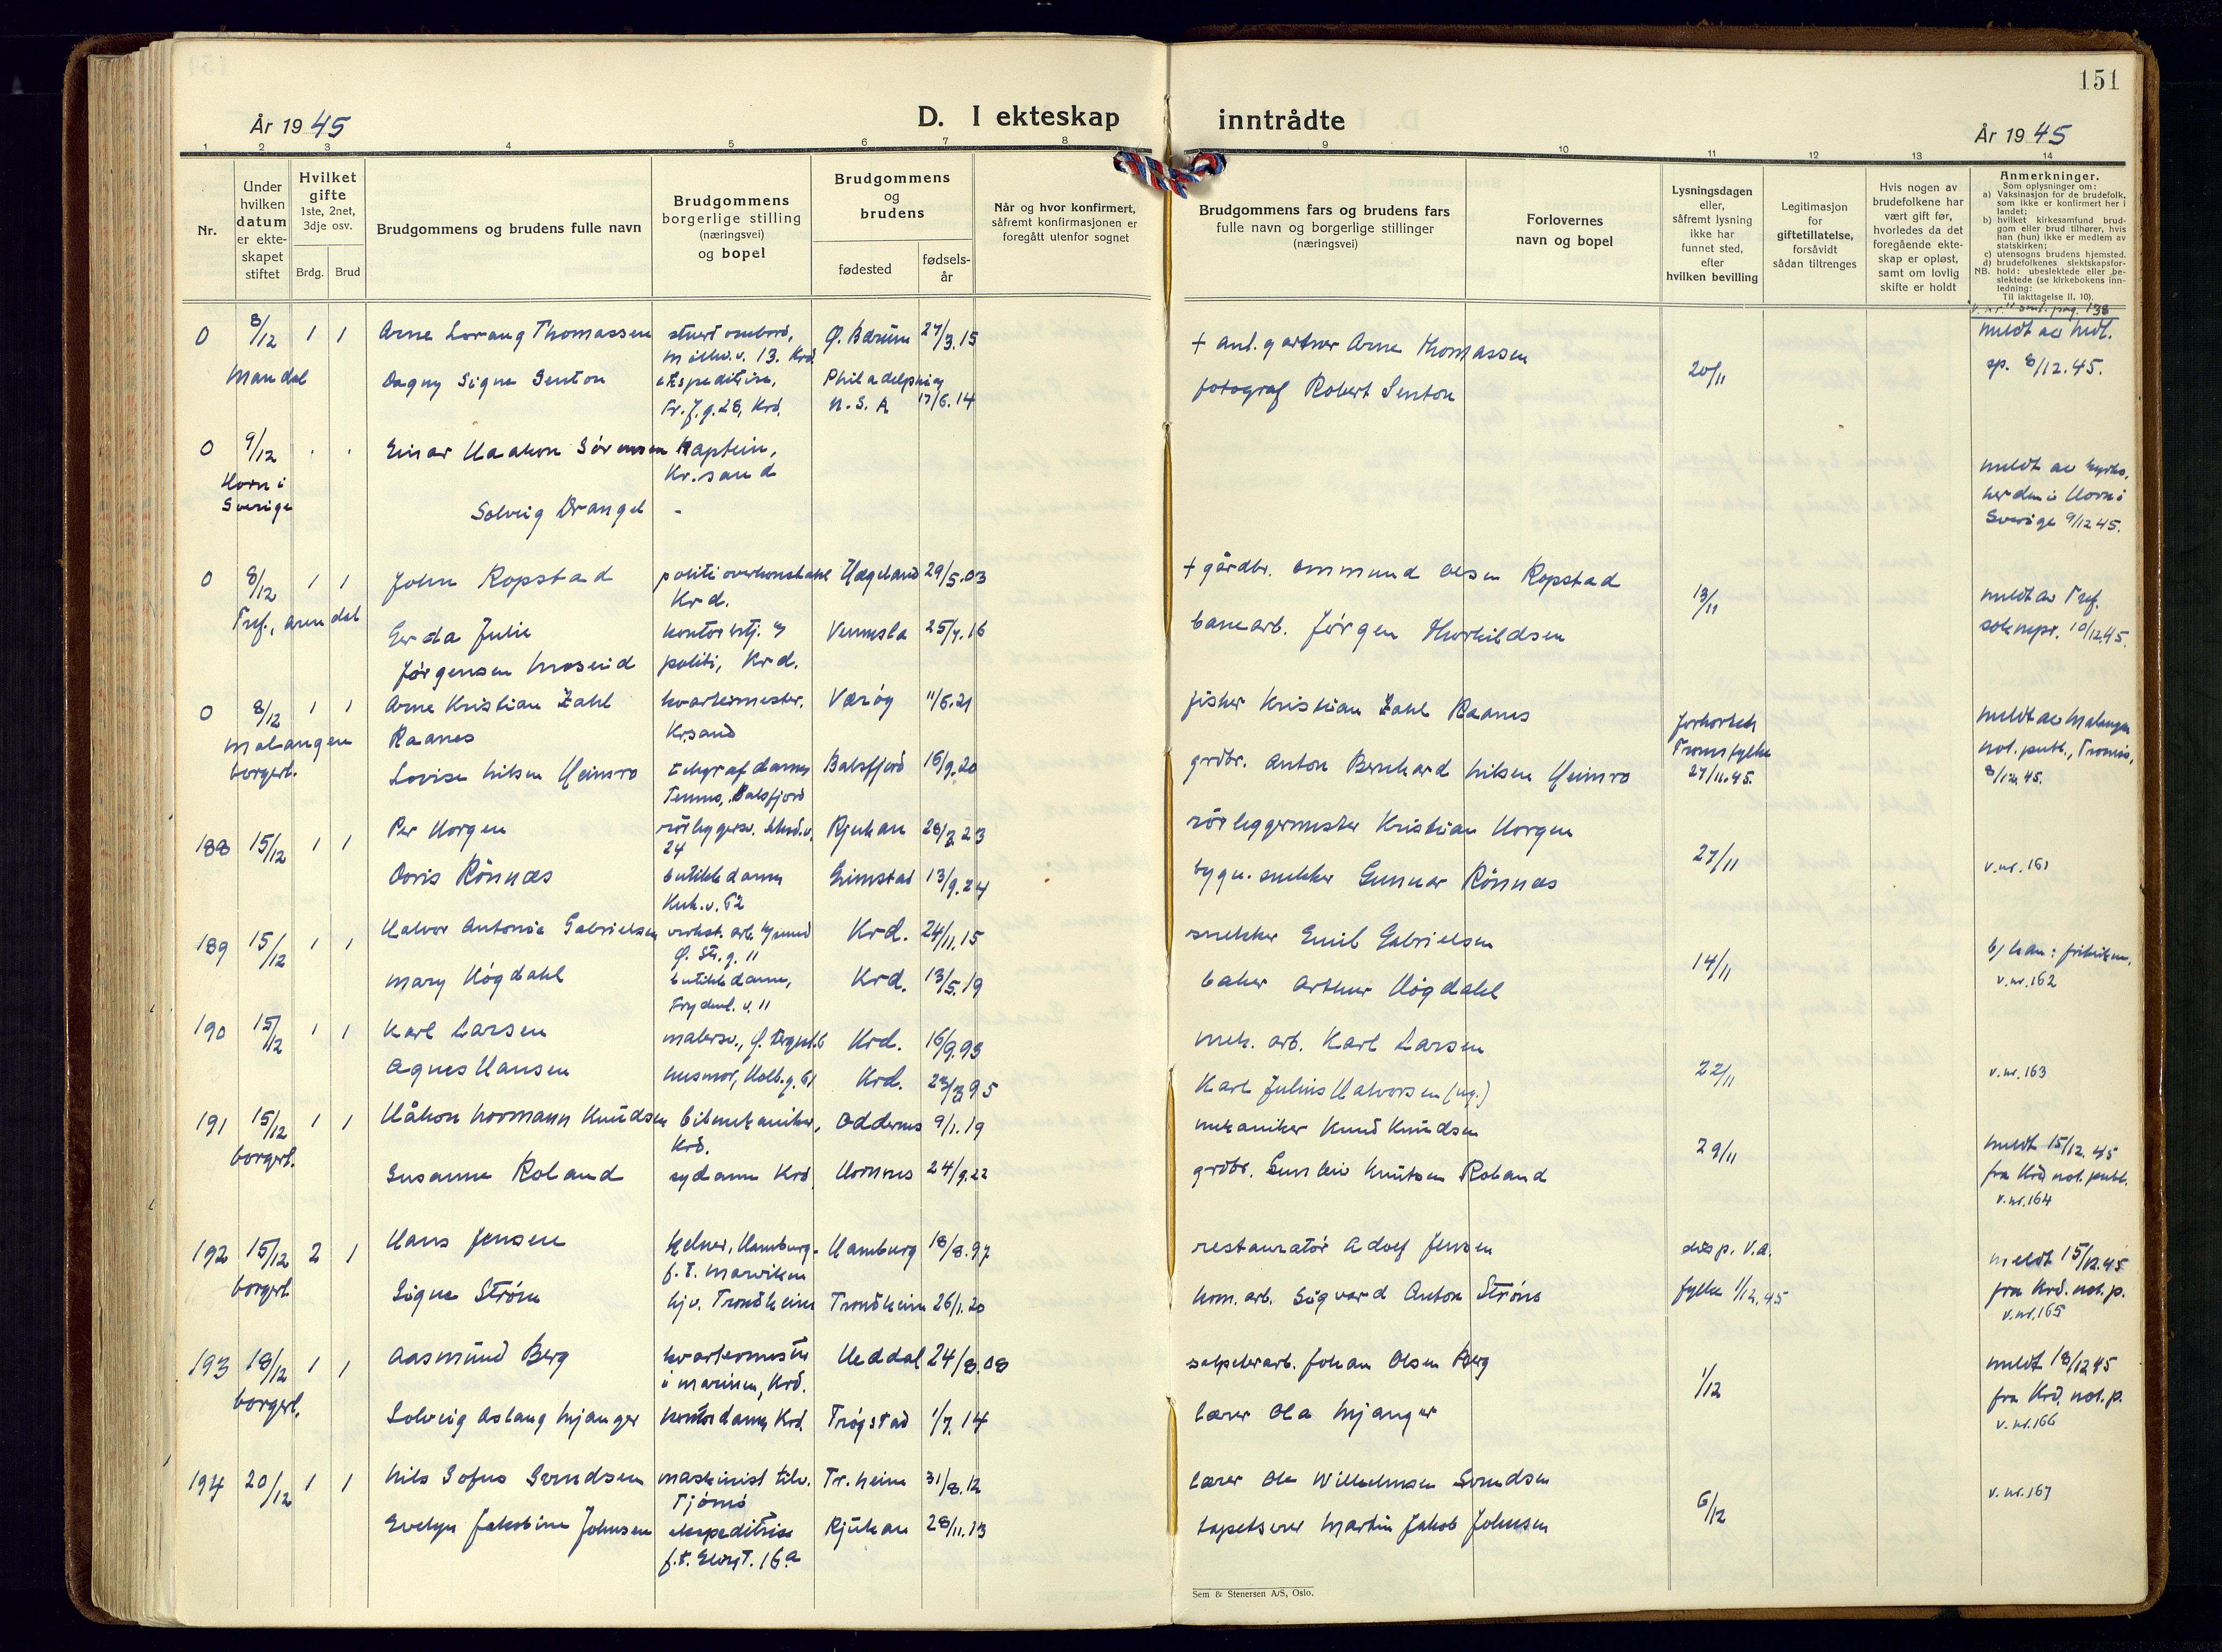 151
År 1945
D. I ekteskap inntrådte
År 1945
1 2 3 4 5 6 7 8 9 10 11 12 13 14
Nr.
Under hvilken datum er ekteskapet stiftet
Hvilket gifte
1ste, 2net, 3dje osv.
Brdg. Brud
Brudgommens og brudens fulle navn
Brudgommens borgerlige stilling (næringsvei) og bopel
Brudgommens og brudens
fødested
fødselsår
Når og hvor konfirmert, såfremt konfirmasjonen er foregått utenfor sognet
Brudgommens fars og brudens fars fulle navn og borgerlige stillinger (næringsvei)
Forlovernes navn og bopel
Lysningsdagen eller, såfremt lysning ikke har funnet sted, efter hvilken bevilling
Legitimasjon for giftetillatelse, forsåvidt sådan tiltrenges
Hvis nogen av brudefolkene har vært gift før, hvorledes da det foregående ekteskap er opløst, samt om lovlig skifte er holdt
Anmerkninger.
Som oplysninger om:
a) Vaksinasjon for de brudefolk, som ikke er konfirmert her i landet;
b) hvilket kirkesamfund brudgom eller brud tilhører, hvis han (hun) ikke er medlem av statskirken;
c) utensogns brudens hjemsted.
d) brudefolkenes slektskapsforhold: ubeslektede eller beslektede (se kirkebokens innledning:
NB.
Til iakttagelse II, 10).
0 8/12 1 1 Arne Lorang Thomassen stuert ombord, Ø. Bærum 27/3.15 + anl. gartner Arne Thomassen 20/11
Mandal Dagny Signe Senton ekspeditrise, Philadelphia U.S.A 17/6.14 fotograf Robert Senton sp. 8/12.45.
0 9/12 Einar Haakon Sörensen Kaptein, Kr.sand
Horn i Sverige Solveig Drangel - Horn i Sverige 9/12 45.
0 8/12 1 1 John Ropstad politioverkonstabel Krd. Hægeland 29/5.03 + gårdbr. Ommund Olsen Ropstad 13/11
Tref., Arendal Gerda Julie Jørgensen Moseid politi, Krd. Vennesla 25/7.16 banearb. Jørgen Thorkildsen meldt av Tref. sokнepr. 10/12.45.
0 8/12 1 1 Arne Kristian Zahl Raanes kvartermester, Kr.sand Værøy 11/6.21 fisker Kristian Zahl Raanes
Malangen borgerl. Lovise Nilsen Heimro telegrafdame Balsfjord 16/9.20 grdbr. Anton Bernhard Nilsen Heimro Troms fylke 27/11.45. meldt av Malangen not. publ., Tromsø, 8/12 45.
188 15/12 1 1 Per Horgen rörleggersv. 24 Rjukan 28/2.23 rörleggermester Kristian Horgen 27/11 v.nr. 161
Doris Rönnæs butikkdame Kuh.v. 62 Grimstad 13/9.24 bygn. snekker Gunnar Rönnæs
189 15/12 1 1 Halvor Antonia Gabrielsen Ø. Str.g. 11 Krd. 24/11.15 snekker Emil Gabrielsen 14/11
Mary Högdahl butikkdame, Frydenl. v. 11 Krd. 13/5.19 baker Arthur Högdahl v.nr. 162
190 15/12 1 1 Karl Larsen malersv., Krd. 16/9.93 mek. arb. Karl Larsen 22/11 v.nr. 163
Agnes Hansen husmor, Holb.g. 61 Krd. Karl Julius Halvorsen (ug.)
191 15/12 1 1 Håkon Normann Knudsen bilmekaniker, Krd. Oddernes 9/1.19 mekaniker Knud Knudsen 29/11
borgerl. Susanne Roland sydame Krd. Hornnes 24/9.22 grdbr. Gunleiv Knutsen Roland meldt 15/12.45 fra Krd not. publ. v.nr. 164
192 15/12 2 1 Hans Jensen kelner, Hamburg- f.t. Marviken Hamburg 18/8.97 restauratör Adolf Jensen disp. V.A. fylke 1/12.45
borgerl Signe Ström hjv. Trondheim Trondheim 26/1.20 kom. arb. Sigvard Anton Ströms meldt 15/12.45 fra Krd. not. p. v.nr. 165
193 18/12 1 1 Aasmund Berg kvartermester i marinen, Krd. Heddal 24/8.08 salpeterarb. Johan Olsen Berg 1/12
borgerl. Solveig Aslaug Mjanger kontordame, Krd. Trøgstad 1/7.14 lærer Ola Mjanger meldt 18/12 45 fra Krd. not. p. v.nr. 166
194 20/12 1 1 Nils Sofus Svendsen maskinist tilv. Tjömö Tr.heim 31/8.12 lærer Ole Wilhelmsen Svendsen 6/12 v.nr. 167
Evelyn Jakobine Johnsen ekspeditrise Rjukan 28/11.13 tapetserer Martin Jakob Johnsen
Sem & Stenersen A/S, Oslo.